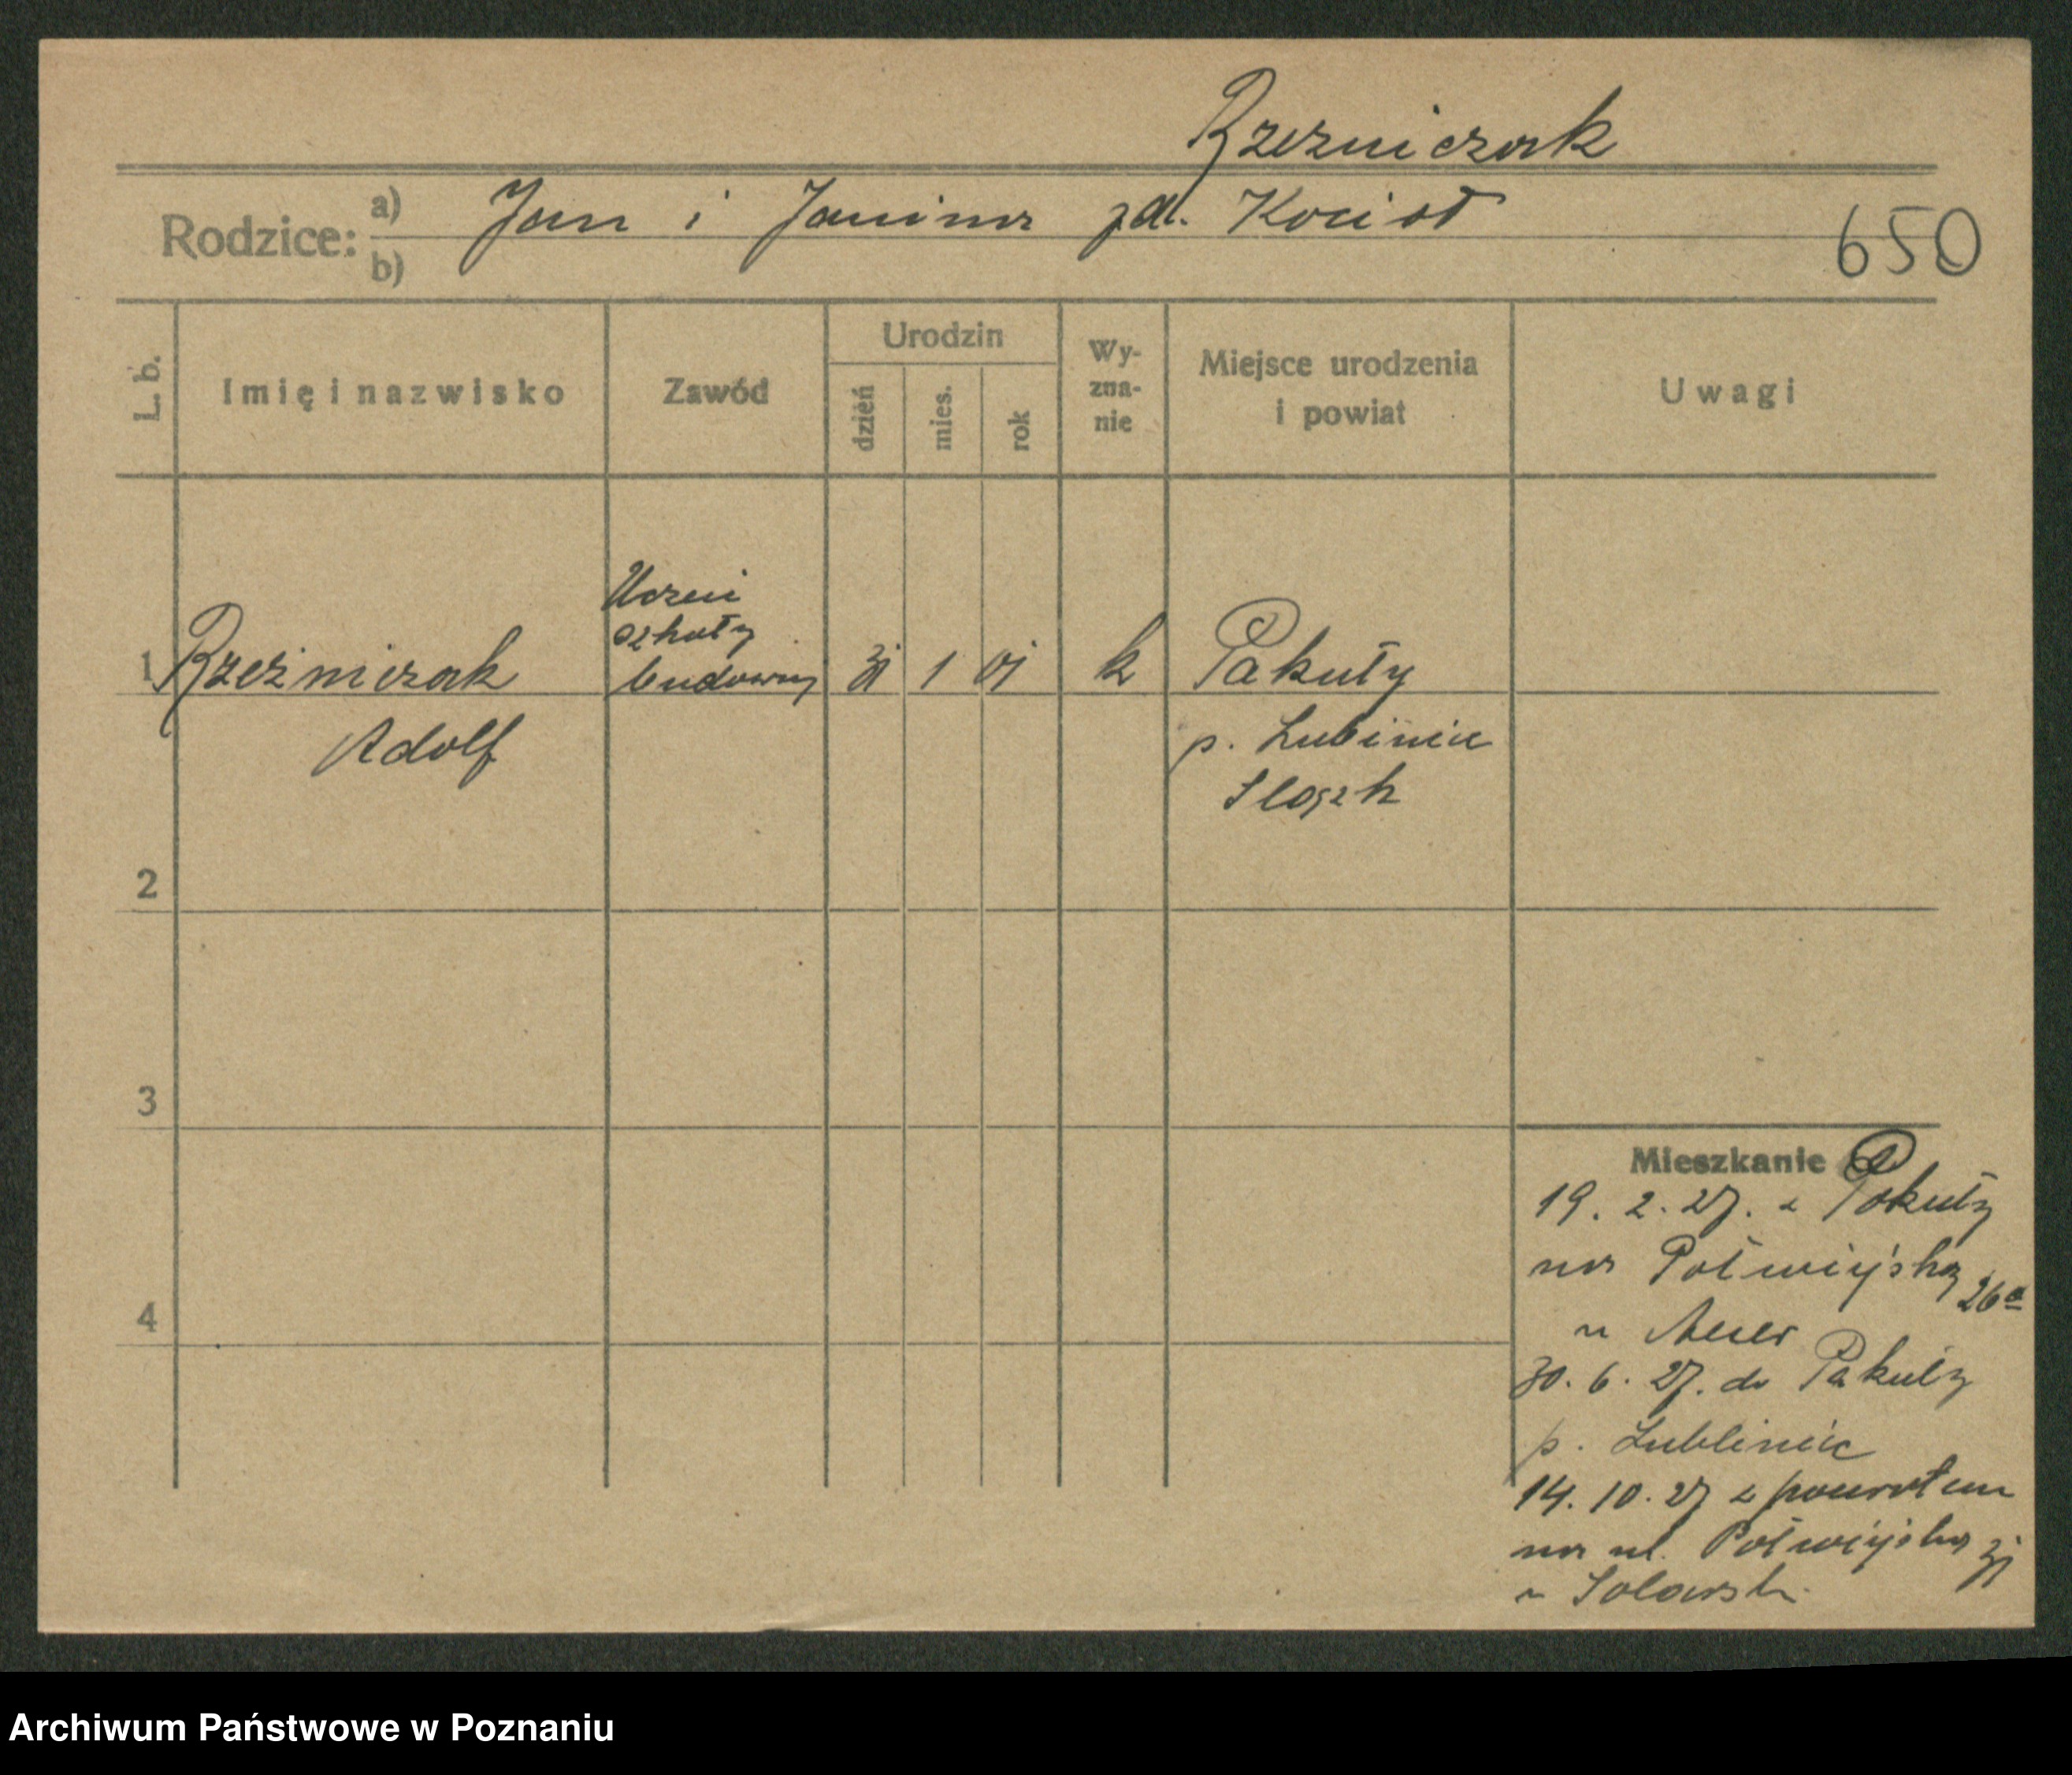 Rzezniczak
Rodzice: a) Jan i Janina zd. Kocioł
b)
650
L. b.
Imię i nazwisko
Zawód
Urodzin
dzień
mies.
rok
Wy-
zna-
nie
Miejsce urodzenia
i powiat
Uwagi
1 Rzeźniczak
Adolf
Uczeń
szkoły
budowny
31 1 01
k
Pakuły
p. Lubiniec
Slązk
2
3
4
Mieszkanie
19. 2. 27. z Pakuły
na Półwiejską 26a
u
30. 6. 27. do Pakuły
p. Lubliniec
14. 10. 27 z powrotem
na ul. Półwiejską 31
u
Archiwum Państwowe w Poznaniu